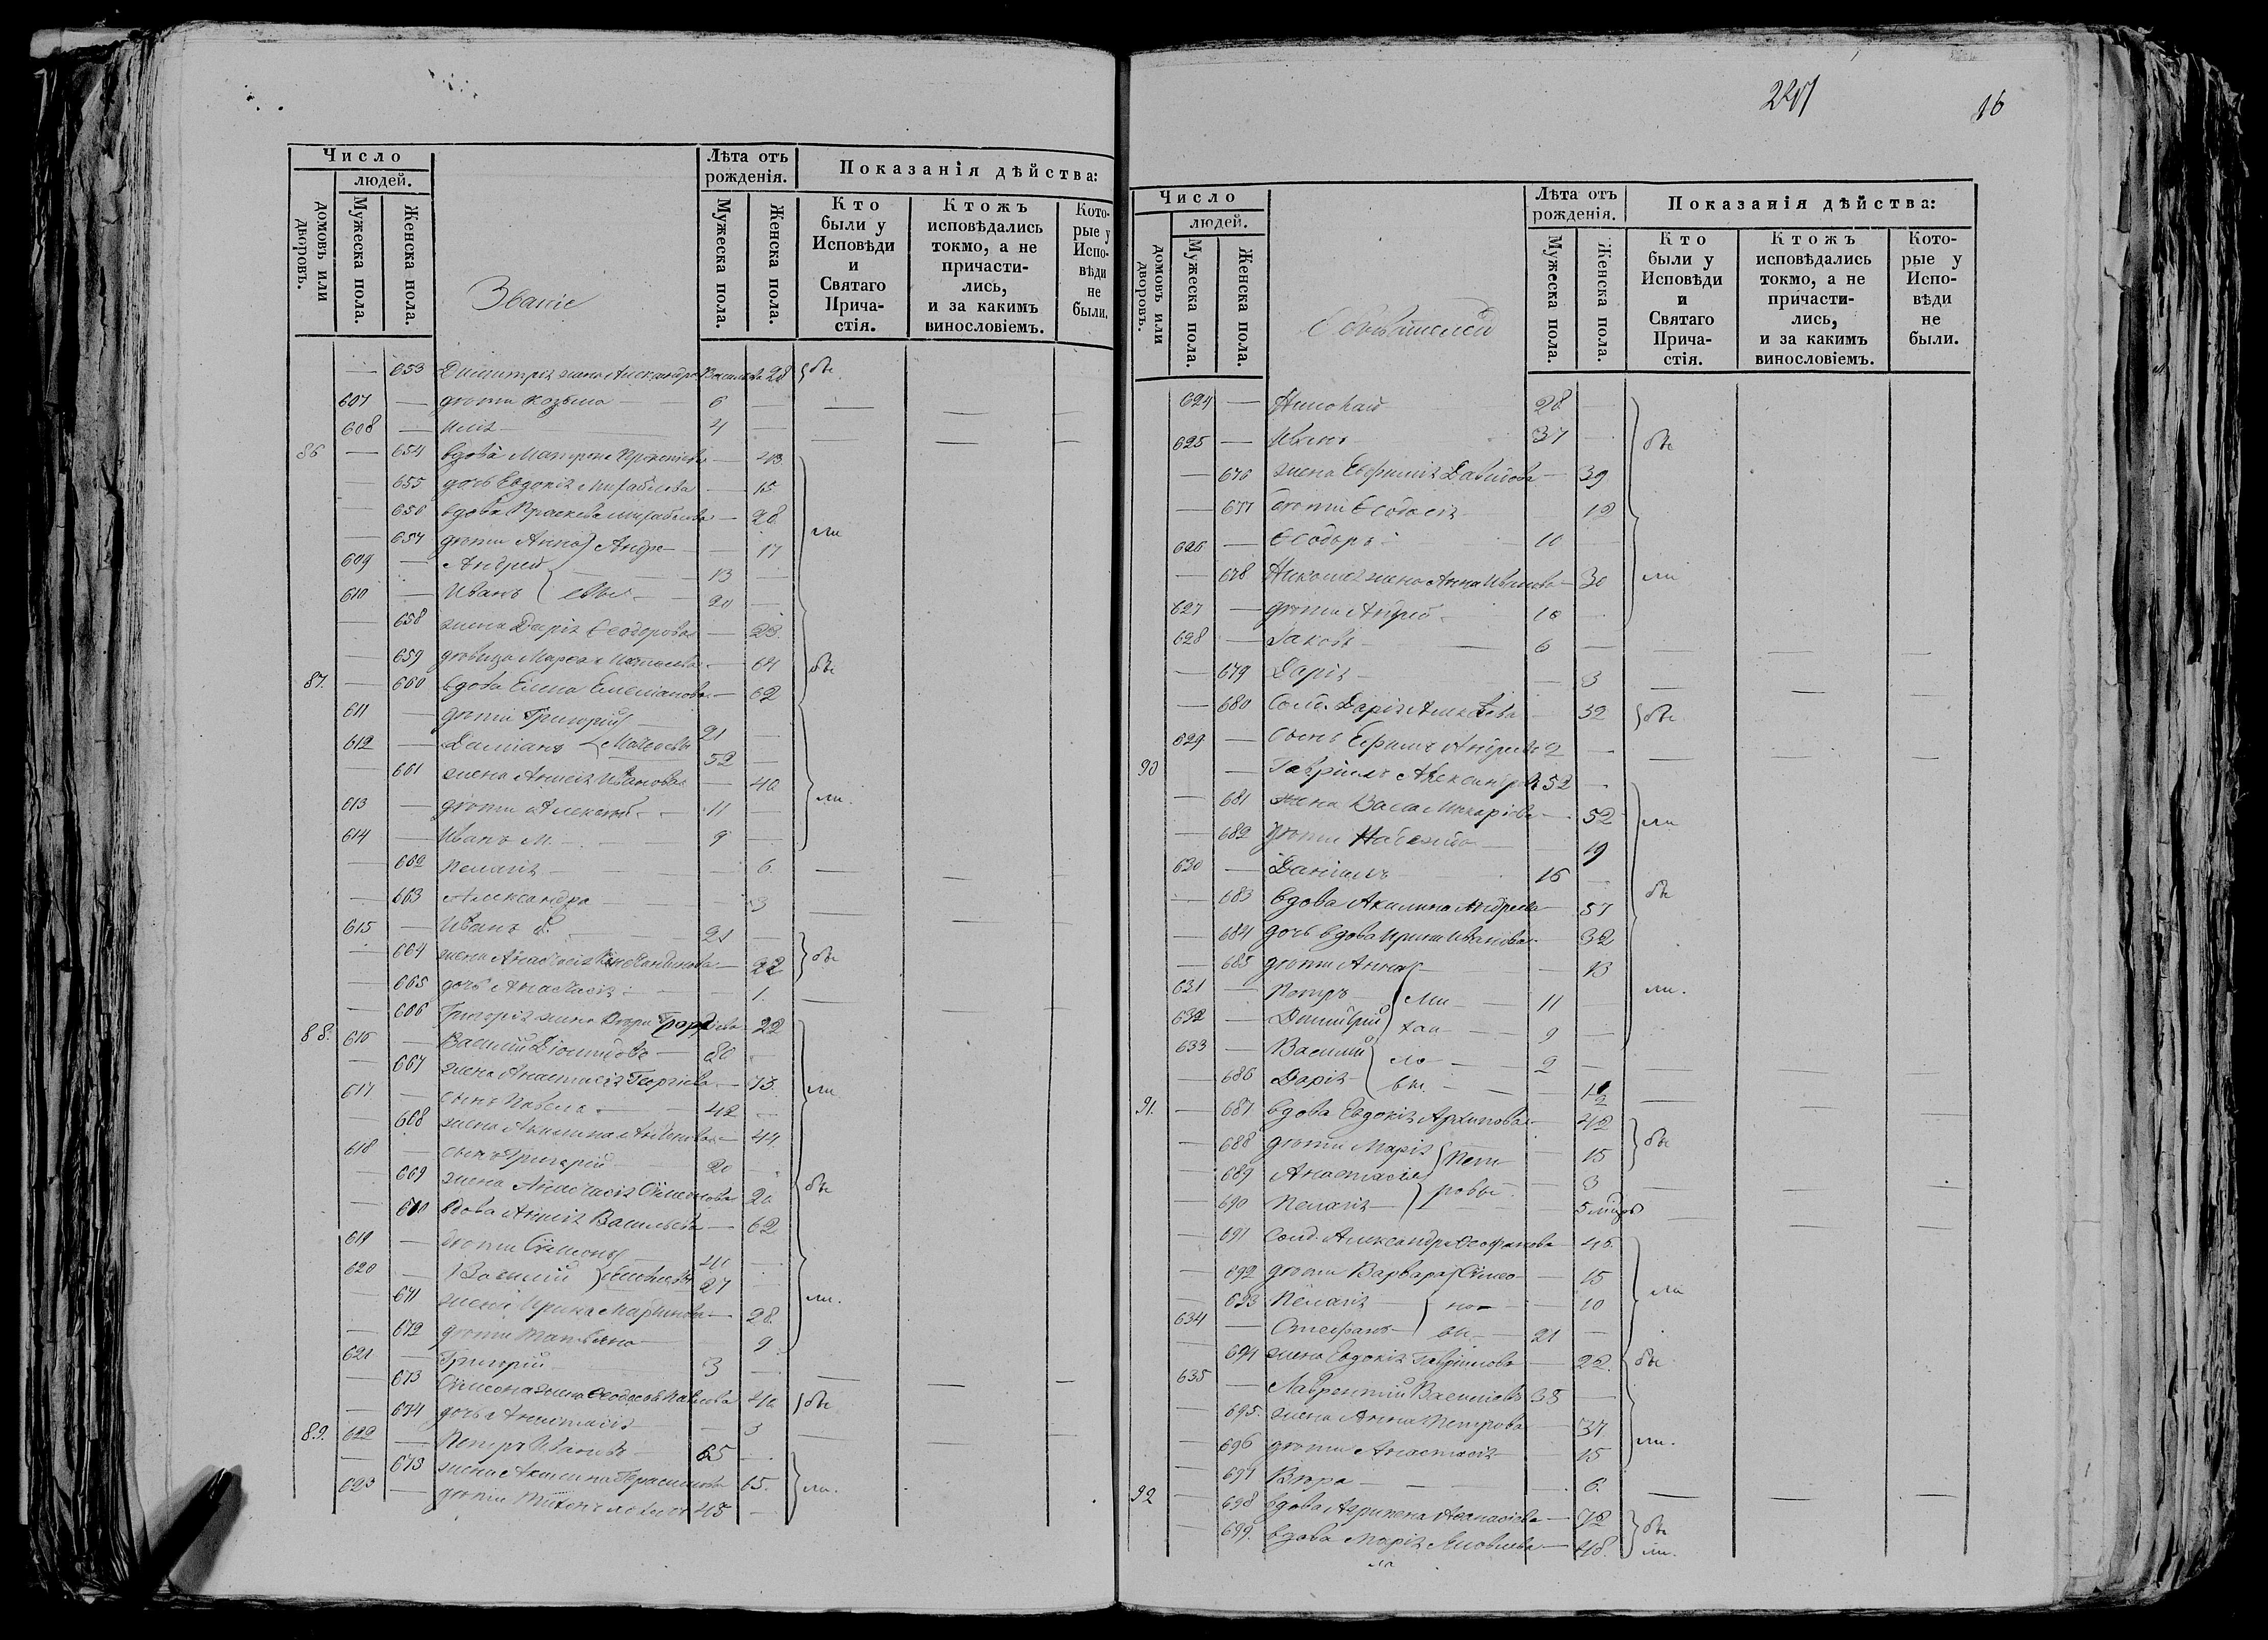 Число
людей.
домовъ или дворовъ.
Мужеска пола.
Женска пола.
Званіе
Лѣта отъ рожденія.
Мужеска пола.
Женска пола.
Показанія дѣйства:
Кто были у Исповѣди и Святаго Прича-стія.
Ктожъ исповѣдались токмо, а не причасти-лись, и за какимъ винословіемъ.
Кото-рые у Испо-вѣди не были.
— 653 Димитрія жена Александра Василева 28 бы
607 — дѣти Козьма — 6 —
608 — Илія — 4 —
86 — 654 вдова Матрона — 43
— 655 дочь Евдокія Михайлова — 15
— 656 вдова Праскева Михайлова — 28
— 657 дѣти Анна Андре — 17 ли
609 — Андрей — 13 —
610 — Иванъ евы — 20 —
— 658 жена Дарія Ѳеодорова — 23
— 659 дѣвица Марѳа — 64 бы
87. — 660 вдова Елена Емеліанова — 62
611 — дѣти Григорій — 21 —
612 — Даміанъ — 52 —
— 661 жена Анисія Иванова — 40
613 — дѣти Алексѣй — 11 — ли.
614 — Иванъ М. — 9 —
— 662 Пелагія — 6.
— 663 Александра — 3
615 — Иванъ б. — 21 —
— 664 жена Анастасія Константинова — 22 бы
— 665 дочь Анастасія — 1.
— 666 Григорія жена — 22
88. 616 — Василій Діомидовъ — 80 —
— 667 жена Анастасія Георгіева — 73. ли
617 — сынъ Павелъ — 42 —
— 668 жена Акилина Антонова — 44.
618 — сынъ Григорій — 20 —
— 669 жена Анастасія Симеонова 20 бы
— 670 вдова Анисія Васильева — 62
619 — дѣти Симеонъ — 40 —
620 — Василій — 27 —
— 671 жена Ирина Мартинова — 28. ли.
— 672 дѣти Татьяна — 9
621 — Григорій — 3 —
— 673 Симеона жена Ѳеодосія Павлова 40 бы
— 674 дочь Анастасія — 3
89. 622 — Петръ Ивановъ — 65 —
— 675 жена Акилина Герасимова 65.
623 — дѣти Тихонъ 45 — ли.
227
16
Число
людей.
домовъ или дворовъ.
Мужеска пола.
Женска пола.
Обывателей
Лѣта отъ рожденія.
Мужеска пола.
Женска пола.
Показанія дѣйства:
Кто были у Исповѣди и Святаго Прича-стія.
Ктожъ исповѣдались токмо, а не причасти-лись, и за какимъ винословіемъ.
Кото-рые у Испо-вѣди не были.
624 — Николай 28 —
625 — Иванъ 37 — бы
— 676 жена Евфимія Давидова — 39
— 677 дѣти Ѳеодосія — 12
626 — Ѳеодоръ — 10 —
— 678 Николая жена Анна Иванова — 30 ли
627 — дѣти Андрей — 10 —
628 — Іаковъ — 6 —
— 679 Дарія — 3
— 680 Солд. Дарія — 32 бы
629 — сынъ Ефимъ Андреевъ 2 —
90 — Гавріилъ Александровъ 52 —
— 681 жена Васса Макаріева — 52 ли
— 682 дѣти Надежда — 19
630 — Даніилъ — 16 —
— 683 вдова Акилина Андреева — 57 бы
— 684 дочь вдова Ирина Иванова — 32
— 685 дѣти Анна — 13
631 — Петръ Ми — 11 — ли.
632 — Димитрій хаи — 9 —
633 — Василій ло — 2 —
— 686 Дарія вы. — 12
91. — 687 вдова Евдокія Архипова — 42
— 688 дѣти Марія Пет — 15 бы
— 689 Анастасія — 3
— 690 Пелагія ровы — 5 мцевъ
— 691 Солд. Александра — 46.
— 692 дѣти Варвара Симео — 15
— 693 Пелагія но — 10 ли
634 — Стефанъ вы — 21 —
— 694 жена Евдокія Гавріилова — 22. бы.
635 — Лаврентій Василіевъ 38 —
— 695. жена Анна Петрова — 37
— 696 дѣти Анастасія — 15 ли.
— 697 Вѣра — 6.
92 — 698 вдова Агрипена Аѳанасіева — 72 бы
— 699. вдова Марія Яковлева — 48. ли.